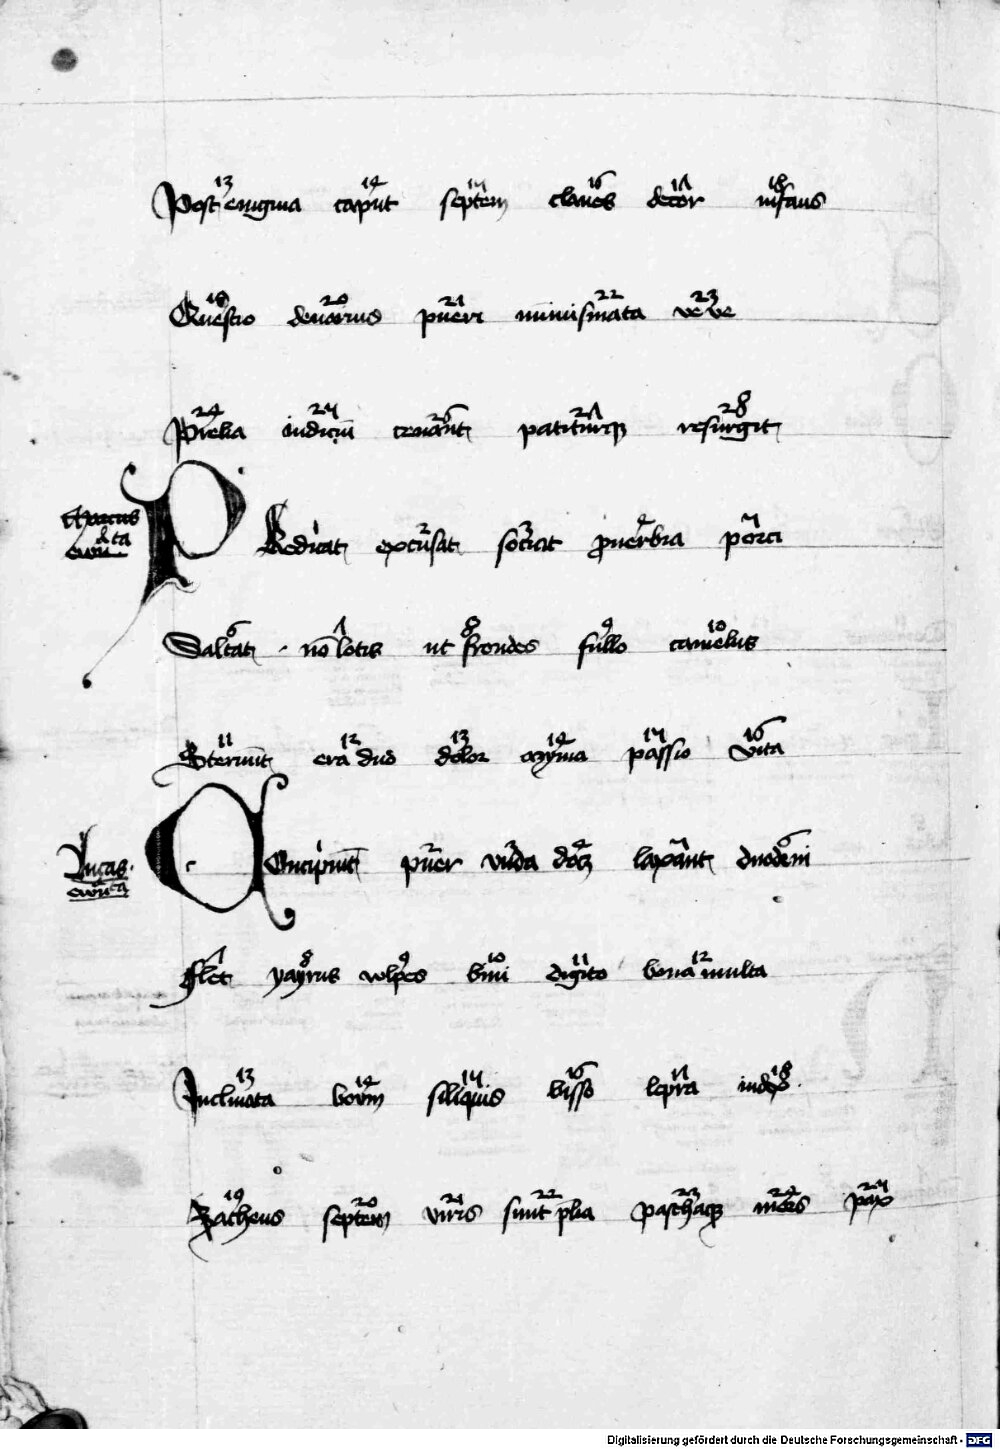 13 14 15 16 17 18
Post enigma caput septem claues decor infans
19 20 21 22 23
Questio denarius pueri numismata ve ve
24 25 26 27 28
Prelia iudiciū cenant patiturq resurgit
Marcus
1 2 3 4 5
PRedicat excusat sociat puerbia porci
6 7 8 9 10
Saltat nō lotis ut frondes fullo camelus
11 12 13 14 15 16
Sternūt era duo dolor azyma passio vita
Lucas
1 2 3 4 5 6
Concipiunt puer vnda docz laxant duodeni
7 8 9 10 11 12
Flet yayrus volpes bini digito bona multa
13 14 15 16 17 18
Inclinata boum siliquis bisso lepra iudex
19 20 21 22 23 24 25
Zacheus septem viris sunt plia paschaq mors pax
Digitalisierung gefördert durch die Deutsche Forschungsgemeinschaft - DFG